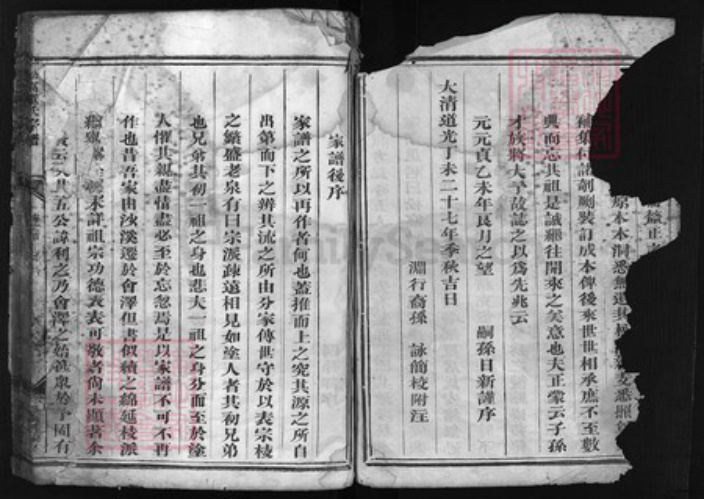 補集付諸剞劂裝訂成本俾後來世世相承庶不至數
典而忘其祖是誠繼往開來之美意也夫正蒙云子孫
才族將大予故誌之以爲先兆云
元元貞乙未年良月之望 嗣孫日新謹序
大清道光丁未二十七年季秋吉日
淵行裔孫 詠簡校附注
家譜後序
家譜之所以再作者何也蓋推而上之究其源之所自
出第而下之辨其流之所由分家傳世守於以表宗棱
之繁盛老泉有曰宗派疎遠相見如塗人者其初兄弟
也兄弟其初一祖之身也悲夫一祖之身分而至於塗
人懼其親盡情盡必至於忘忽焉是以家譜不可不再
作也昔吾家由沙溪遷於會澤但書似績之綿延棱派
未詳祖宗功德表表可敬者尙未顯著余
五公諱利之乃會澤之始